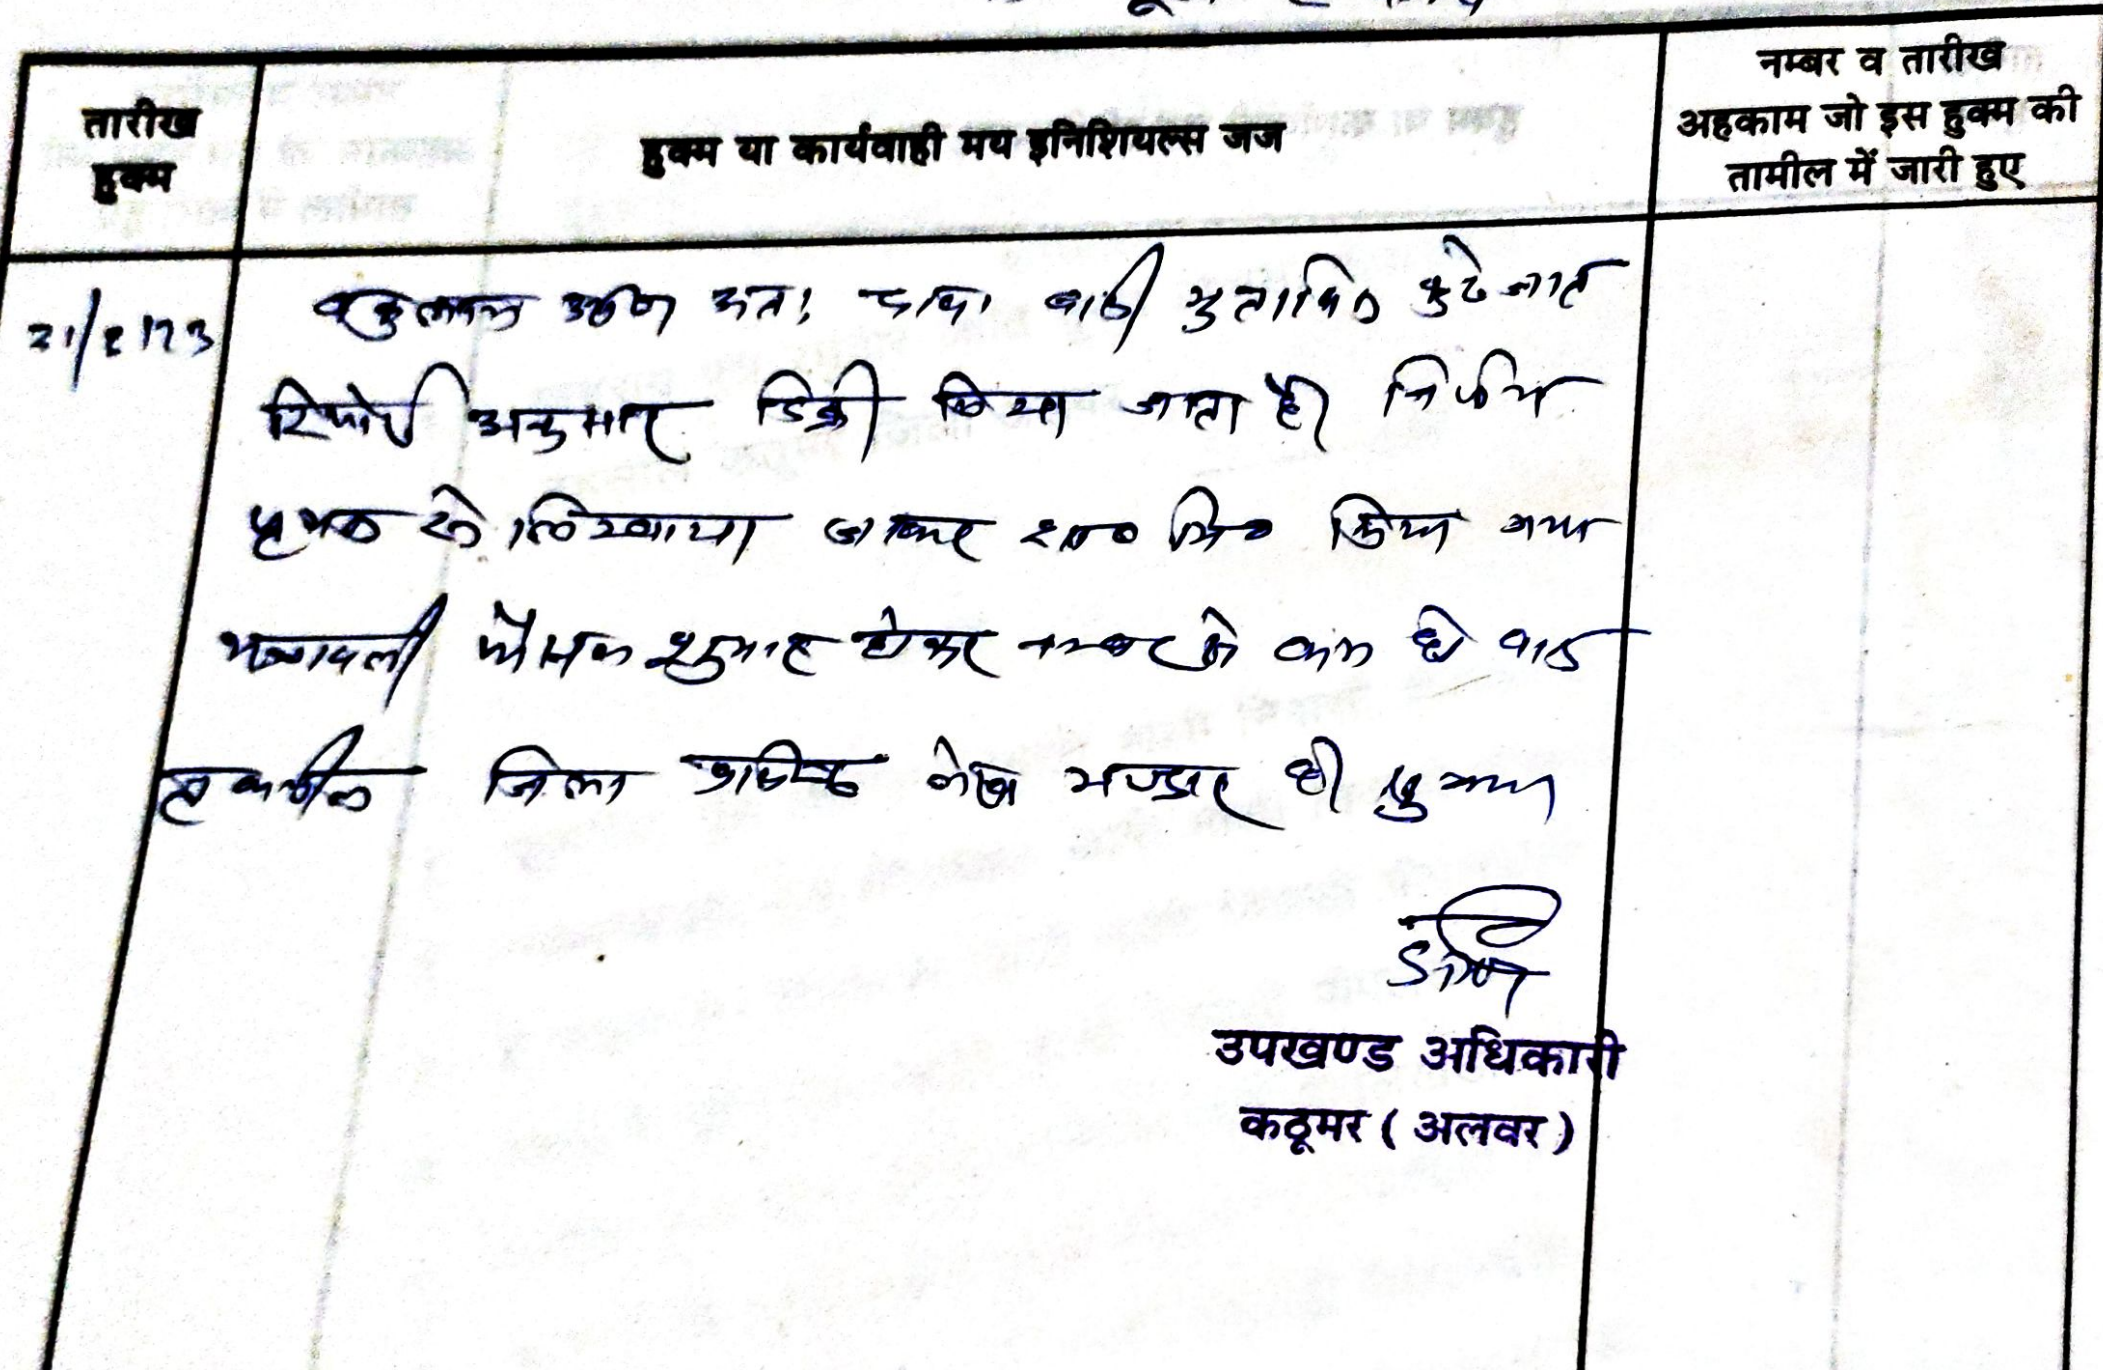 तारीख
हुक्म
हुक्म या कार्यवाही मय इनिशियल्स जज
नम्बर व तारीख
अहकाम जो इस हुक्म की
तामील में जारी हुए
अतः वादी मुताबिक
रिपोर्ट अनुसार डिक्री किया जाता है। निर्णय
पृथक से लिखाया जाकर शा० मि० किया गया
पत्रावली फैसल शुमार होकर नम्बर से कम हो बाद
तकमील जिला अभिलेख भण्डार हो
उपखण्ड अधिकारी
कठूमर ( अलवर )